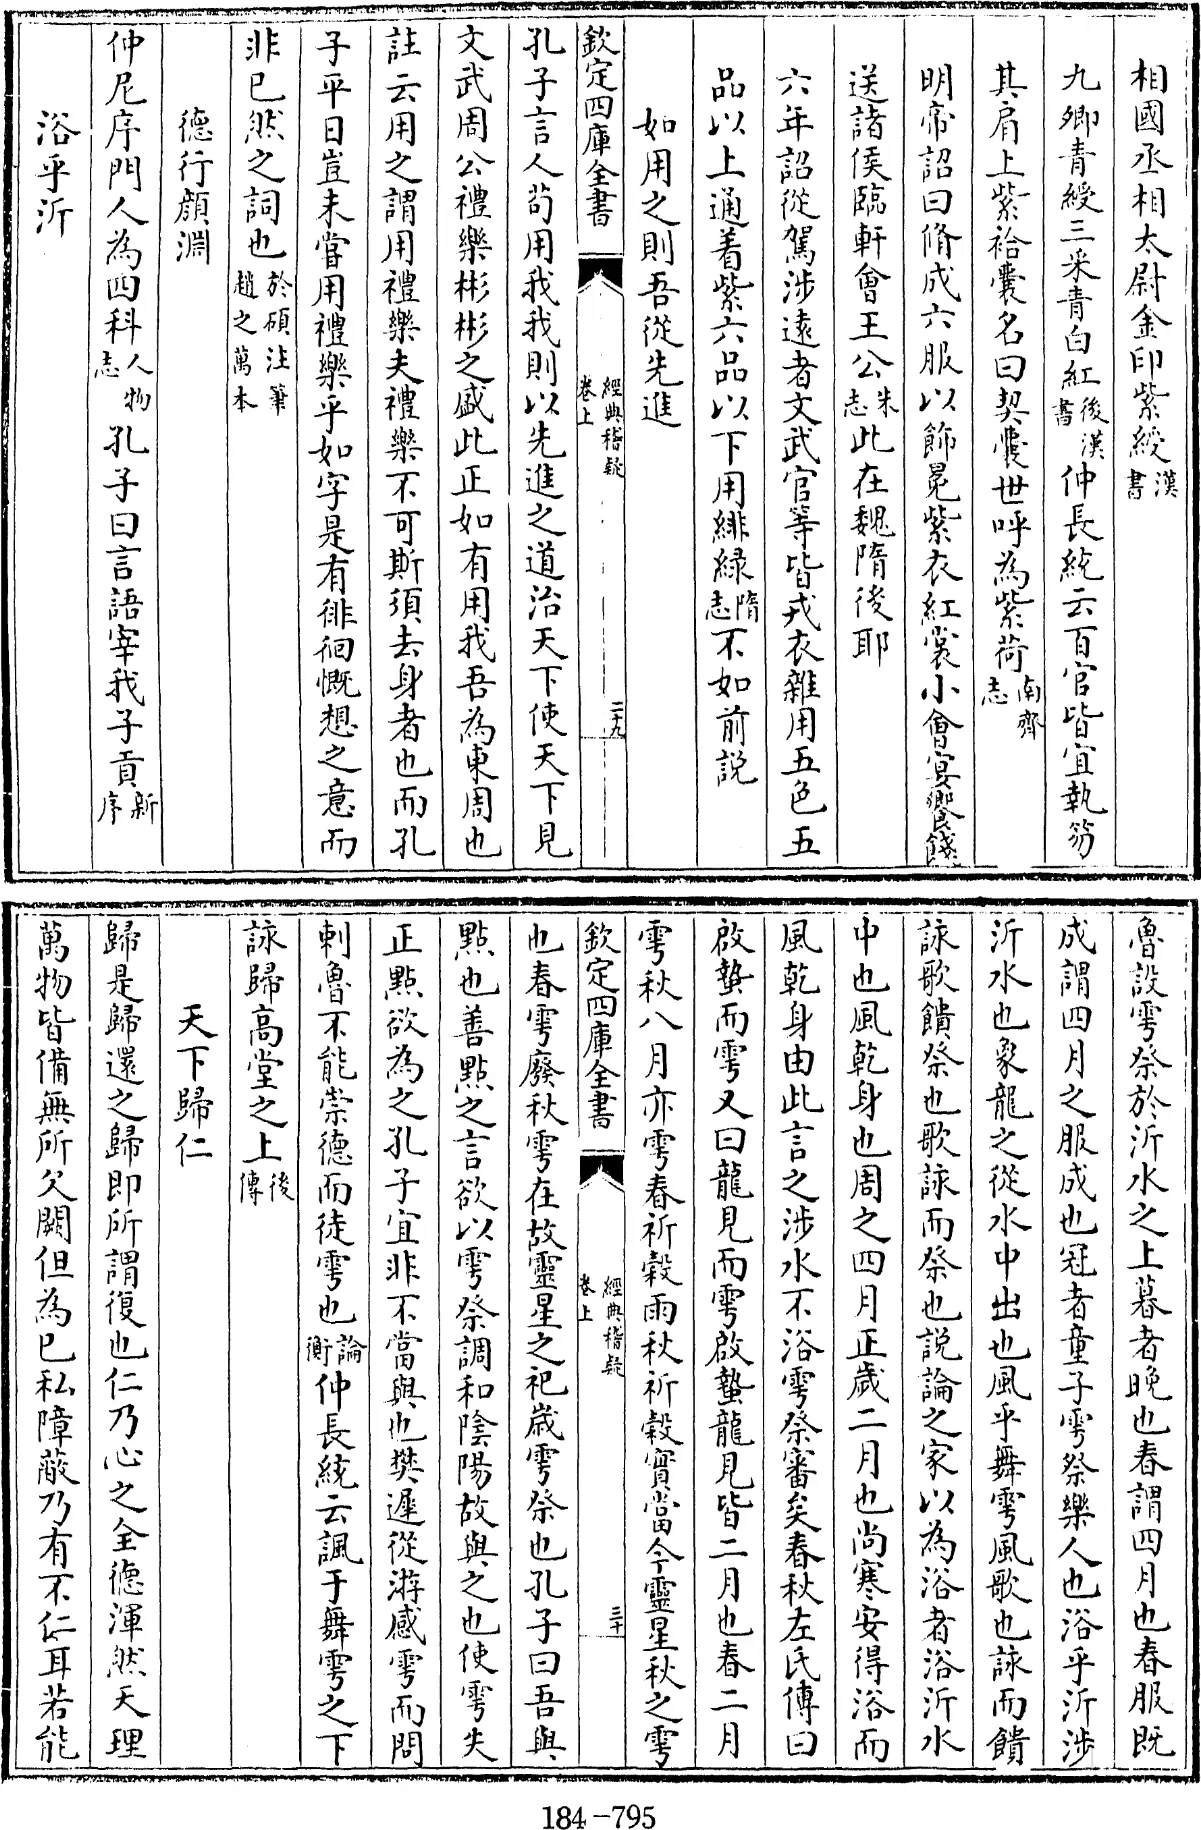 相國丞相太尉金印紫綬漢書
九卿青綬三采青白紅後漢書仲長統云百官皆宜執笏
其肩上紫袷囊名曰契囊世呼為紫荷南齊志
明帝詔曰脩成六服以飾冕紫衣紅裳小會宴饗餞
送諸侯臨軒會王公朱志此在魏隋後耶
六年詔從駕涉遠者文武官等皆戎衣雜用五色五
品以上通着紫六品以下用緋綠隋志不如前說
如用之則吾從先進
欽定四庫全書
經典稽疑
卷上
二十九
孔子言人茍用我我則以先進之道治天下使天下見
文武周公禮樂彬彬之盛此正如有用我吾為東周也
註云用之謂用禮樂夫禮樂不可斯須去身者也而孔
子平日豈未嘗用禮樂乎如字是有徘徊慨想之意而
非已然之詞也於碩注筆趙之萬本
德行顔淵
仲尼序門人為四科人物志孔子曰言語宰我子貢新序
浴乎沂
魯設雩祭於沂水之上暮者晚也春謂四月也春服既
成謂四月之服成也冠者童子雩祭樂人也浴乎沂涉
沂水也象龍之從水中出也風乎舞雩風歌也詠而饋
詠歌饋祭也歌詠而祭也說論之家以為浴者浴沂水
中也風乾身也周之四月正歲二月也尚寒安得浴而
風乾身由此言之涉水不浴雩祭審矣春秋左氏傳曰
啟蟄而雩又曰龍見而雩啟蟄龍見皆二月也春二月
雩秋八月亦雩春祈穀雨秋祈穀實當今靈星秋之雩
欽定四庫全書
經典稽疑
卷上
三十
也春雩廢秋雩在故靈星之祀歲雩祭也孔子曰吾與
點也善點之言欲以雩祭調和陰陽故與之也使雩失
正點欲為之孔子宜非不當與也樊遲從游感雩而問
刺魯不能崇德而徒雩也論衡仲長統云諷于舞雩之下
詠歸高堂之上後傳
天下歸仁
歸是歸還之歸即所謂復也仁乃心之全德渾然天理
萬物皆備無所欠闕但為已私障蔽乃有不仁耳若能
184-795